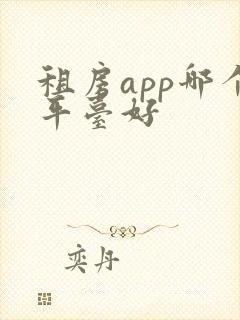 租房app哪个
平臺好
奕丹